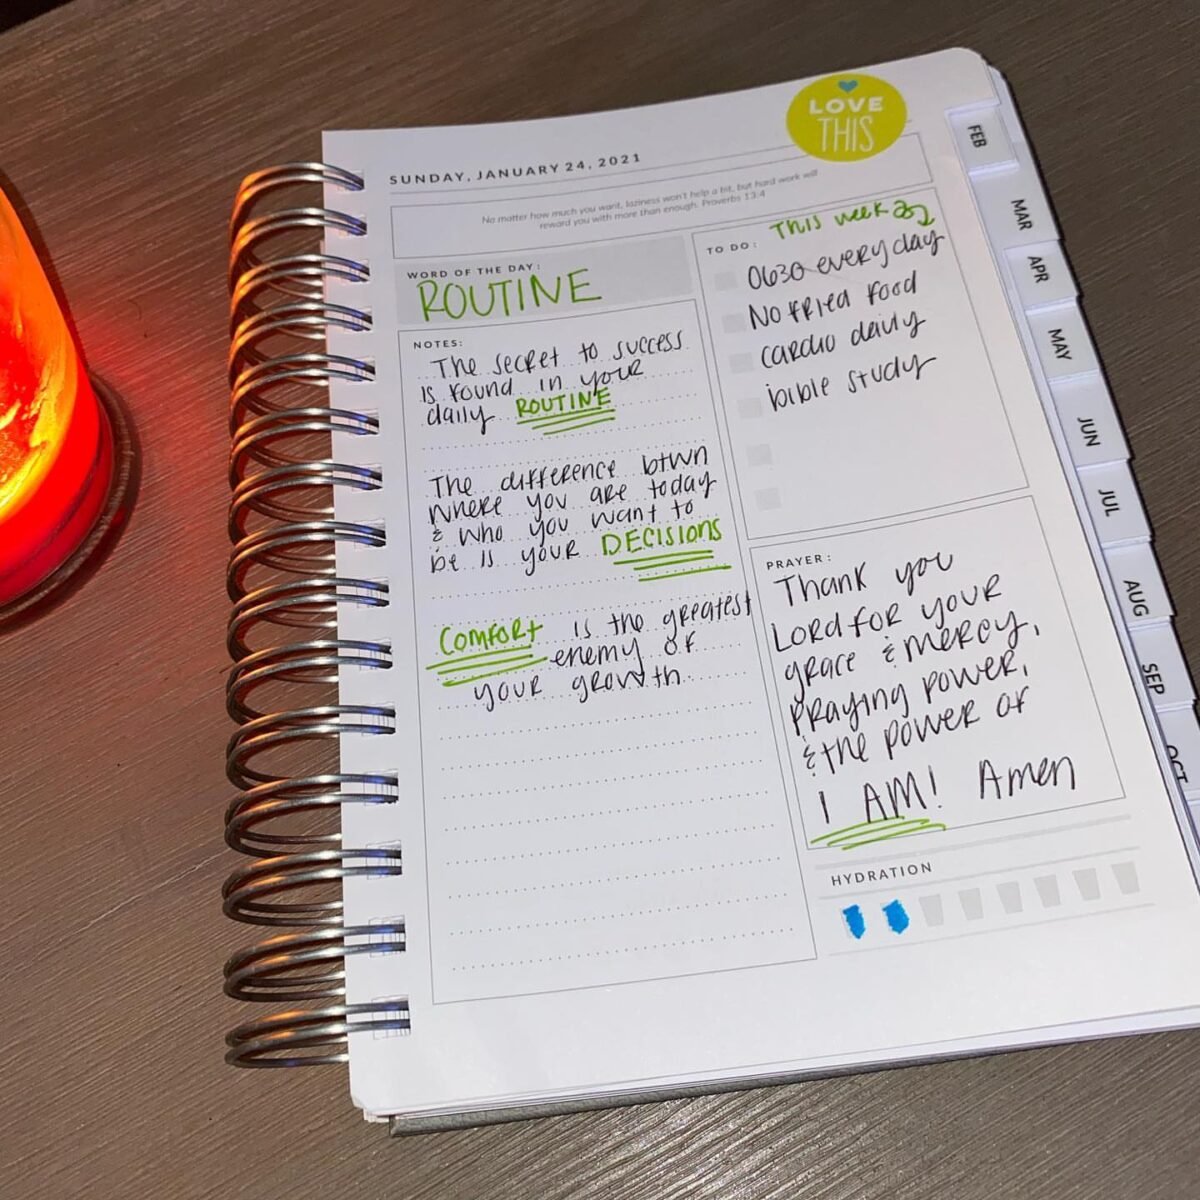 LOVE
THIS
SUNDAY, JANUARY 24, 2021
No matter how much you want, laziness won't help a bit, but hard work will
reward you with more than enough. Proverbs 13:4
WORD OF THE DAY:
ROUTINE
NOTES:
The secret to success
is found in your
daily ROUTINE
The difference btwn
where you are today
& who you want to
be is your DECISIONS
Comfort is the greatest
enemy of
your growth
TO DO:
This week
0630 everyday
No fried food
cardio daily
bible study
PRAYER:
Thank you
Lord for your
grace & mercy,
praying power,
& the power of
I AM! Amen
HYDRATION
FEB
MAR
APR
MAY
JUN
JUL
AUG
SEP
OCT